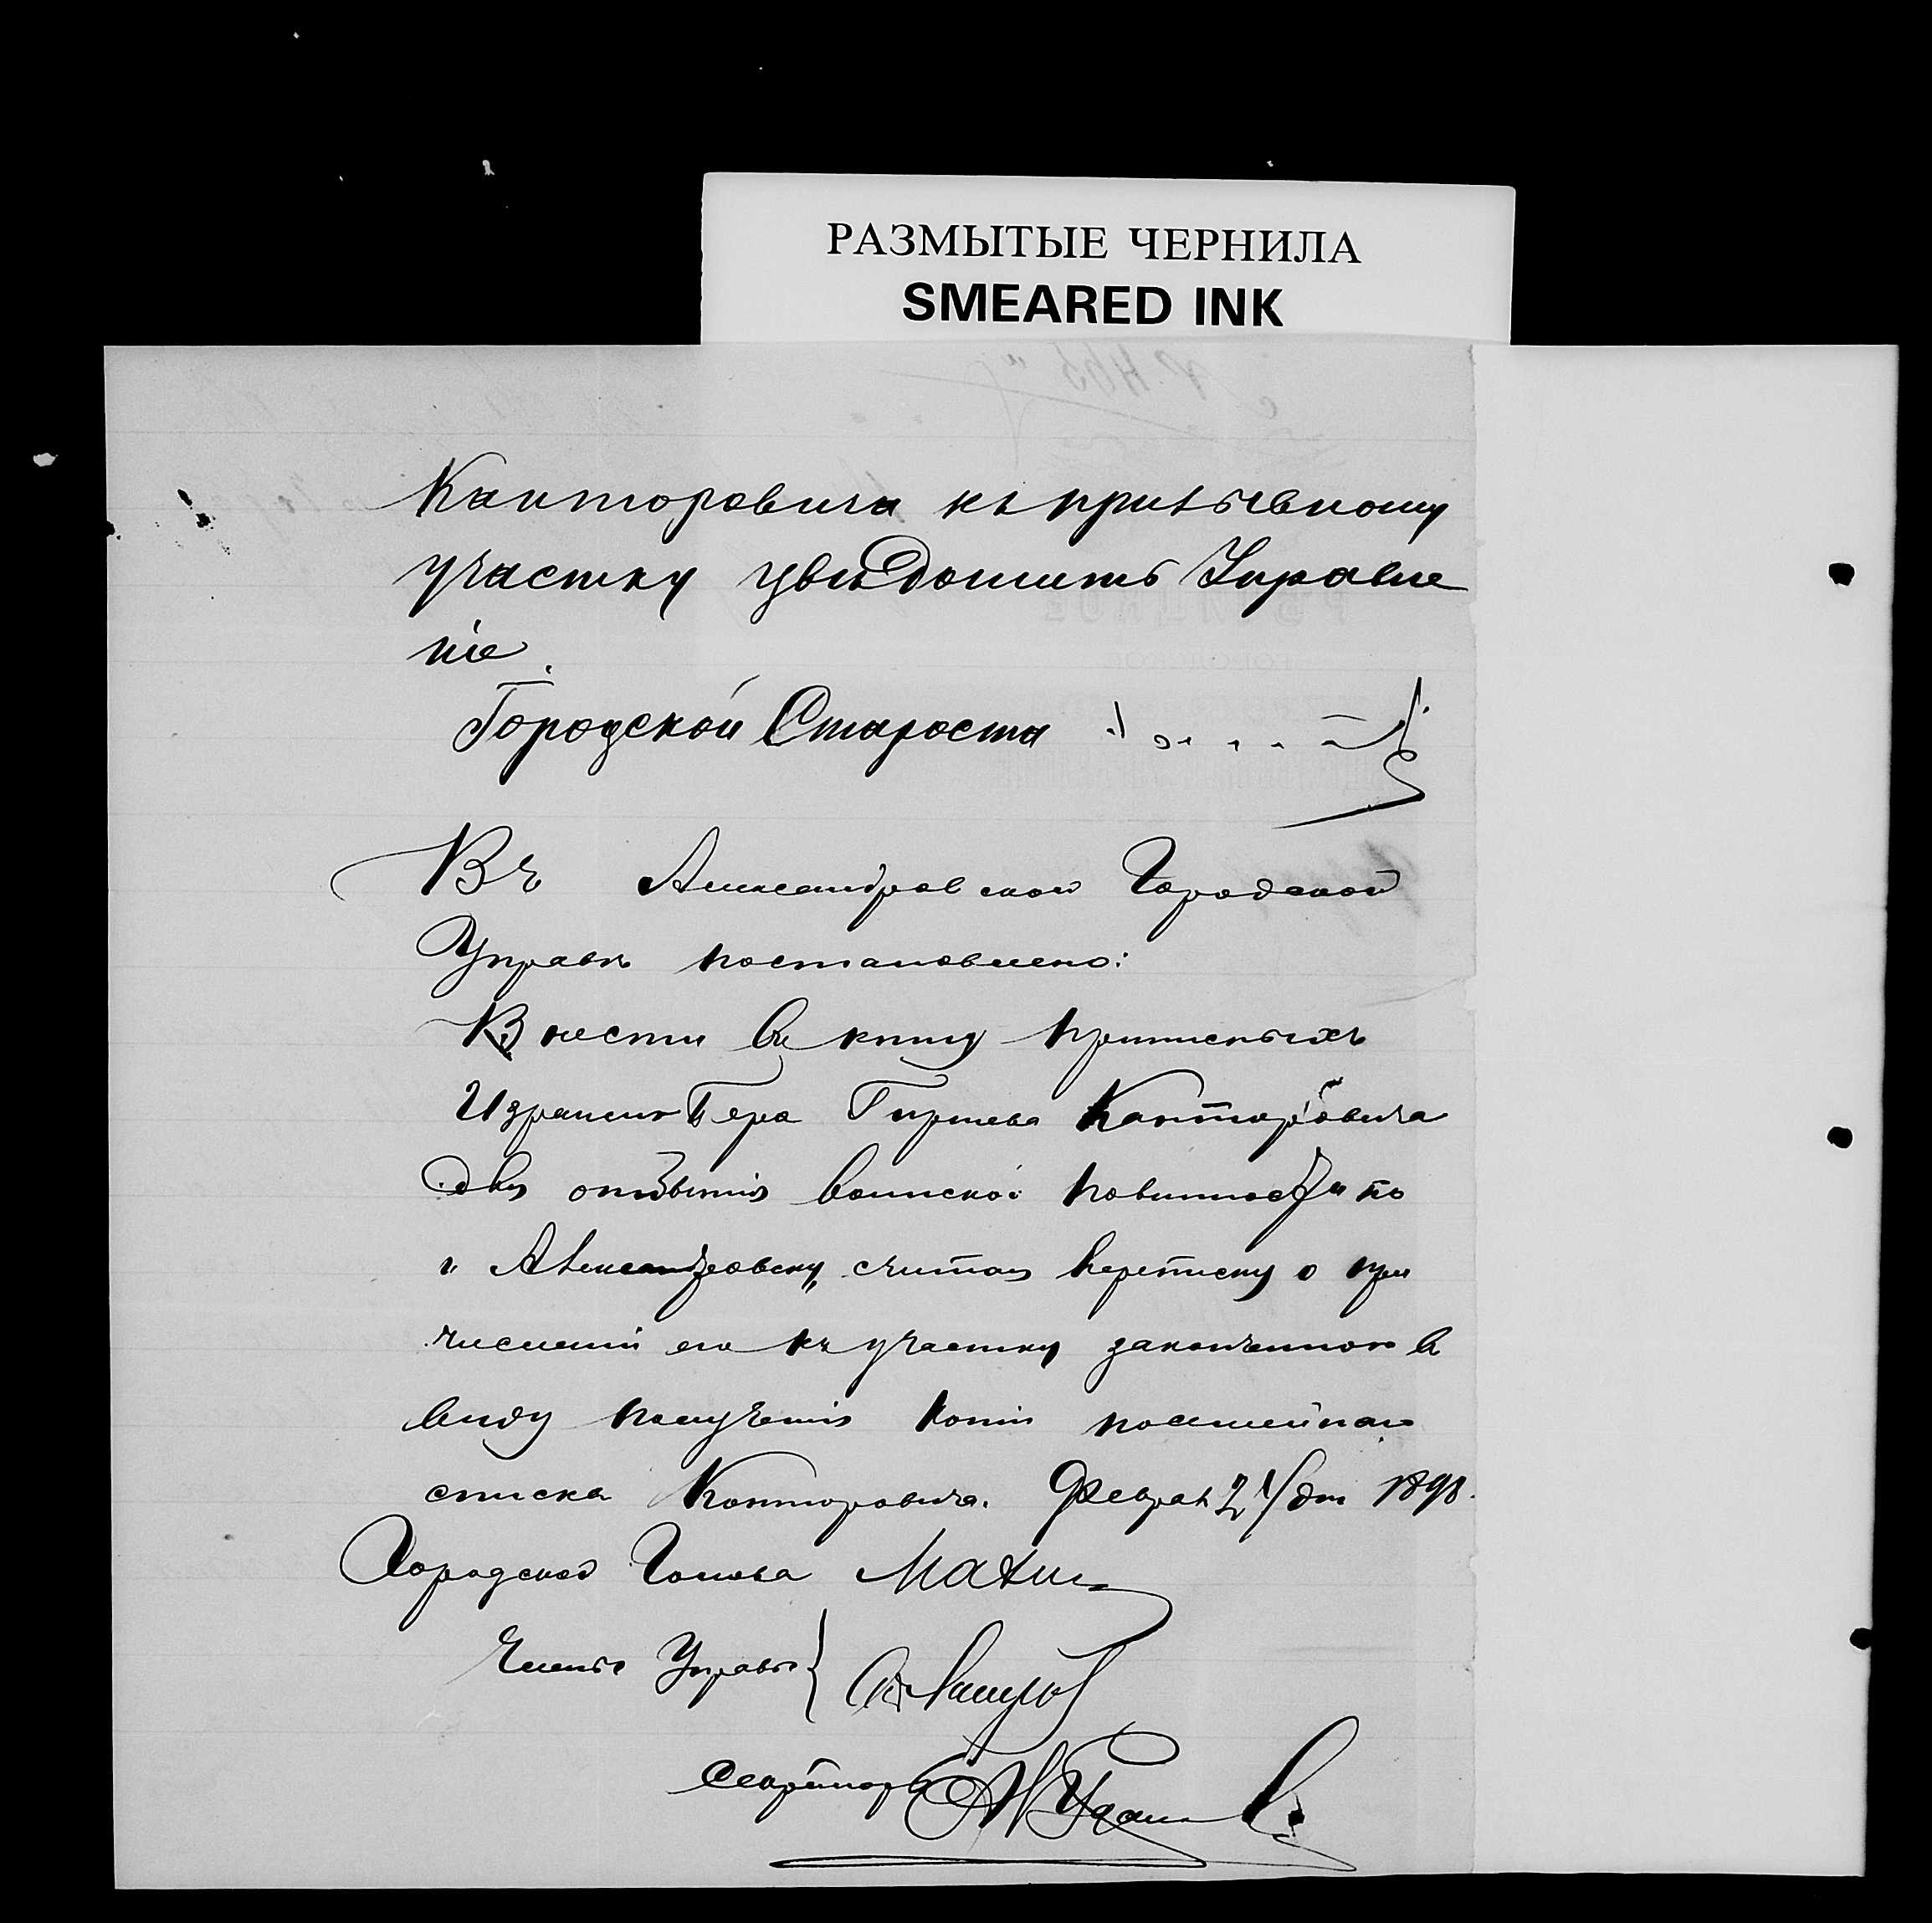 РАЗМЫТЫЕ ЧЕРНИЛА
SMEARED INK
Канторовича къ призывному
участку увѣдомить Управле
ніе.
Городской Староста
Въ Александровской Городской
Управѣ постановлено:
Внести въ книгу приписныхъ
Израиля Бера Гиршева Канторовича
для отбытія воинской повинности по
г. Александровску, считая переписку о при
численіи его къ участку законченною въ
виду полученія копіи посемейнаго
списка Канторовича. Февраля 21 дня 1898.
Городской Голова
Члены Управы
Секретарь